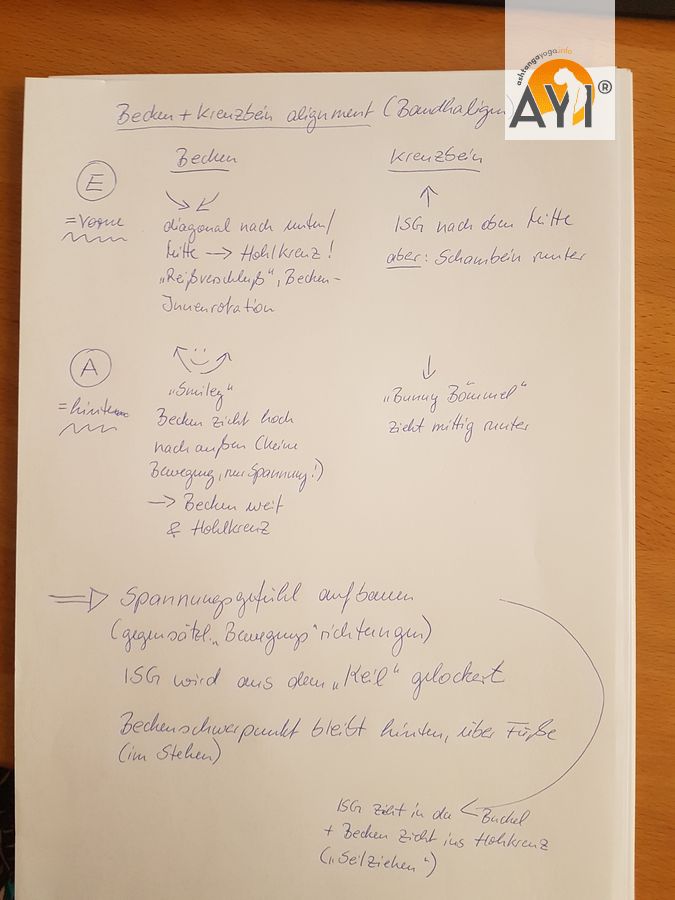 ashtangayoga.info
AYI®
Becken + Kreuzbein alignment (Bandhalign
Becken
Kreuzbein
E
= vorne
diagonal nach unten/
Mitte → Hohlkreuz!
„Reißverschluß", Becken-
Innenrotation
↑
ISG nach oben Mitte
aber: Schambein runter
A
= hinten
„Smiley"
Becken zieht hoch
nach außen (keine
Bewegung, nur Spannung!)
→ Becken weit
& Hohlkreuz
↓
„Bunny Bömmel"
zieht mittig runter
⇒ Spannungsgefühl aufbauen
(gegensätzl. „Bewegungs"richtungen)
ISG wird aus dem „Keil" gelockert
Beckenschwerpunkt bleibt hinten, über Füße
(im Stehen)
ISG zieht in den Buckel
+ Becken zieht ins Hohlkreuz
(„Seilziehen")